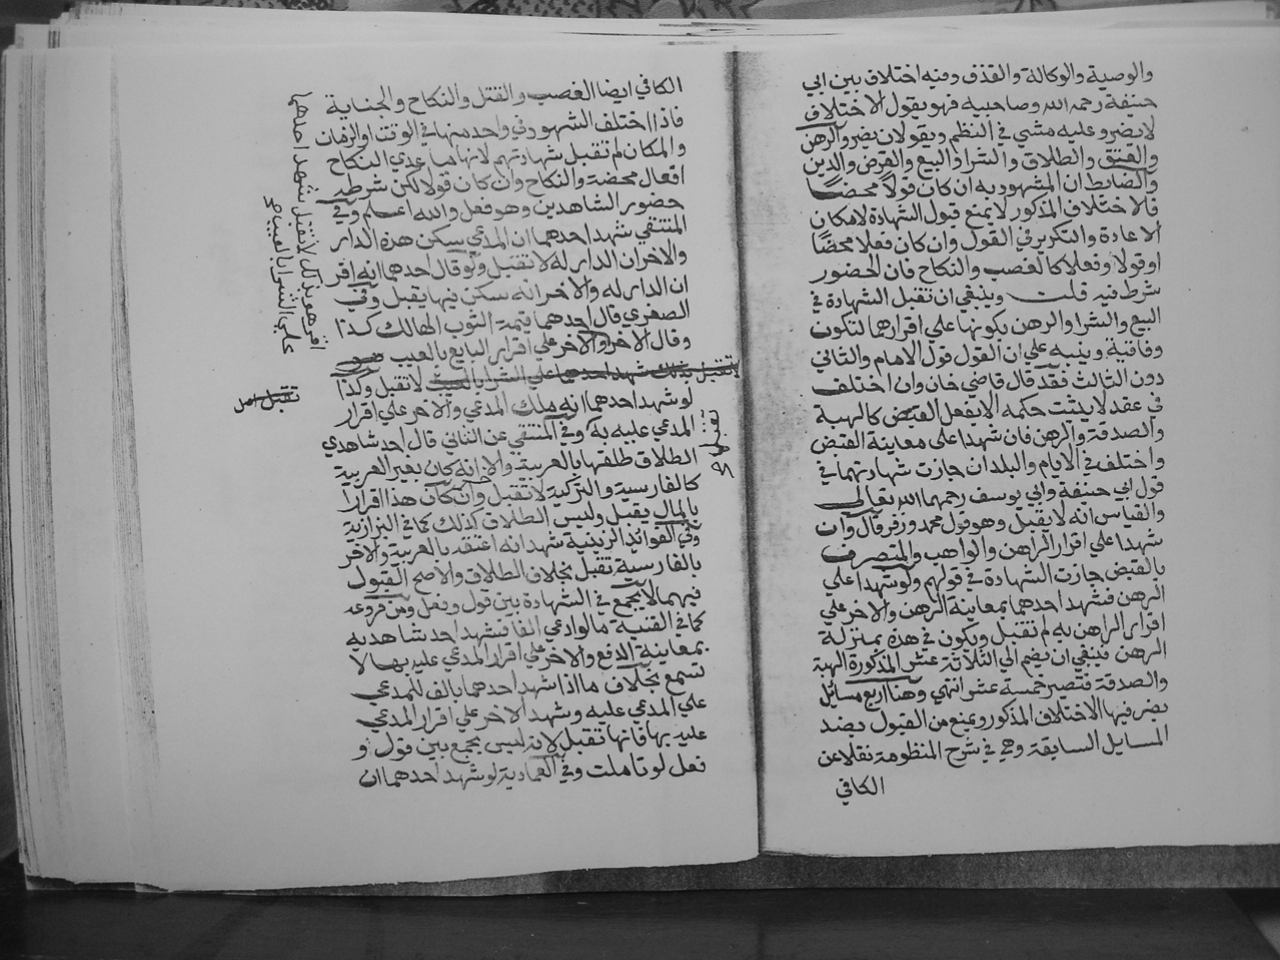 والوصية والوكالة والقذف ومنه اختلاف بين ابي
حنيفة رحمه الله وصاحبيه فهو يقول الاختلاف
لا يضر وعليه مشي في النظم ويقولان يضر والرهن
والعتق والطلاق والشراء والبيع والقرض والدين
والضابط ان المشهود به ان كان قولا محضا
فالاختلاف المذكور لا يمنع قبول الشهادة لامكان
الاعادة والتكرير في القول وان كان فعلا محضا
او قولا وفعلا كالغصب والنكاح فان الحضور
شرط فيه قلت وينبغي ان تقبل الشهادة في
البيع والشرا والرهن بكونها علي اقرارها لتكون
وفاقية وينبه علي ان القول قول الامام والثاني
دون الثالث فقد قال قاضي خان وان اختلف
في عقد لا يثبت حكمه الا بفعل القبض كالهبة
والصدقة والرهن فان شهدا على معاينة القبض
واختلف في الايام والبلدان جازت شهادتهما في
قول ابي حنيفة وابي يوسف رحمهما الله تعالى
والقياس انه لا يقبل وهو قول محمد وزفر قال وان
شهدا علي اقرار الراهن والواهب والمتصرف
بالقبض جازت الشهادة في قولهم ولو شهدا علي
الرهن فشهد احدهما بمعاينة الرهن والاخر علي
اقرار الراهن به لم تقبل ويكون في هذه بمنزلة
الرهن فينبغي ان يضم الي الثلاثة عشر المذكورة الهبة
والصدقة فتصير خمسة عشر انتهي وهنا اربع مسائل
يضر فيها الاختلاف المذكور ويمنع من القبول بضد
المسايل السابقة وهي في شرح المنظومة نقلا عن
الكافي
الكافي ايضا الغصب والقتل والنكاح والجناية
فاذا اختلف الشهود في واحد منها في الوقت او الزمان
والمكان لم تقبل شهادتهم لانها ما عدي النكاح
افعال محضة والنكاح وان كان قولا لكن شرطه
حضور الشاهدين وهو فعل والله اعلم وفي
المنتقي شهد احدهما ان المدعي سكن هذه الدار
والاخر ان الدار له لا تقبل ولو قال احدهما انه اقر
ان الدار له والاخر انه سكن فيها يقبل وفي
الصغري قال احدهما قيمة الثوب الهالك كذا
وقال الاخر والاخر علي اقرار البايع بالعيب
تقبل بذلك شهد احدهما علي الشرا بالعيب لا تقبل وكذا
لو شهد احدهما انه ملك المدعي والاخر علي اقرار
المدعي عليه به وفي المنتقي عن الثاني قال احد شاهدي
الطلاق طلقها بالعربية والاخر انه كان بغير العربية
كالفارسية والتركية لا تقبل وان كان هذا اقرارا
بالمال يقبل وليس الطلاق كذلك كما في البزازية
وفي الفوائد الزينية شهد انه اعتقه بالعربية والاخر
بالفارسية تقبل بخلاف الطلاق والاصح القبول
فيهما لا يجمع في الشهادة بين قول وفعل ومن فروعه
كما في القنية ما لو ادعي الفا فشهد احد شاهديه
بمعاينة الدفع والاخر علي اقرار المدعي عليه بها لا
تسمع بخلاف ما اذا شهد احدهما بالف للمدعي
علي المدعي عليه وشهد الاخر علي اقرار المدعي
عليه بها فانها تقبل لانه ليس بجمع بين قول و
فعل لو تاملت وفي العمادية لو شهد احدهما ان
اقر هو بذلك لا تقبل شهد احدهما
علي الشرا بالعيب
تقبل اصل